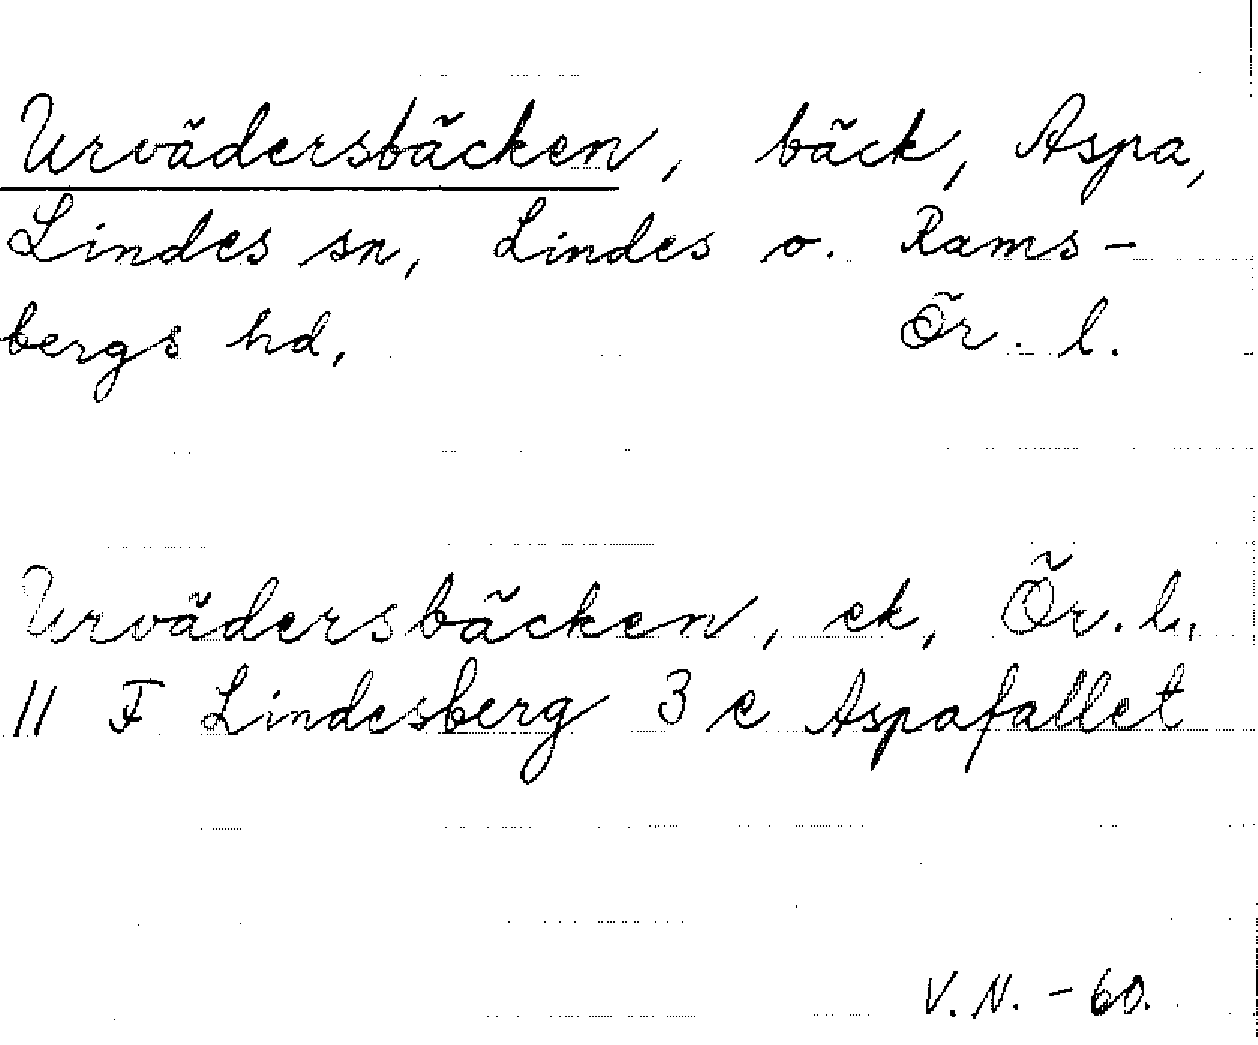 Urvädersbäcken, bäck, Aspa,
Lindes sn, Lindes o. Rams-
bergs hd, Ör. l.
Urvädersbäcken, ek, Ör. l.,
11 F Lindesberg 3 c Aspafallet
V.N. -60.